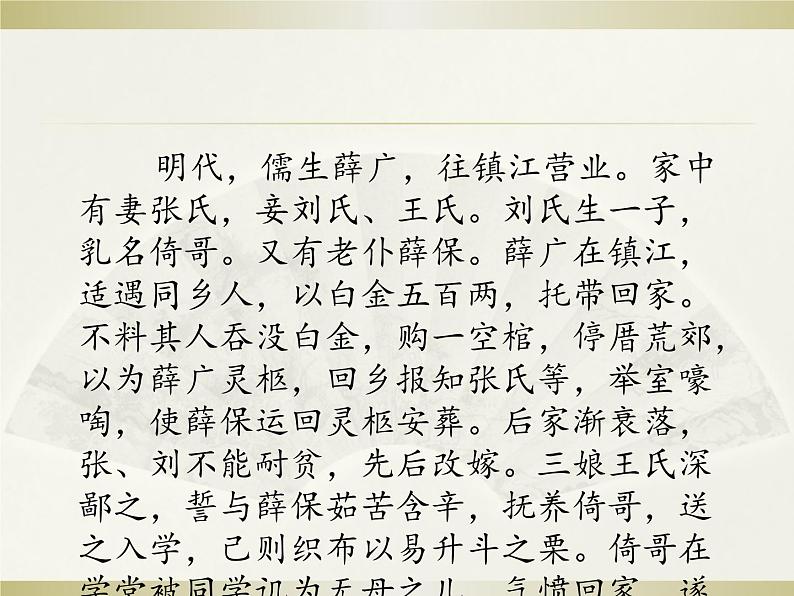 明代，儒生薛广，往镇江营业。家中
有妻张氏，妾刘氏、王氏。刘氏生一子，
乳名倚哥。又有老仆薛保。薛广在镇江，
适遇同乡人，以白金五百两，托带回家。
不料其人吞没白金，购一空棺，停厝荒郊，
以为薛广灵柩，回乡报知张氏等，举室嚎
啕，使薛保运回灵柩安葬。后家渐衰落，
张、刘不能耐贫，先后改嫁。三娘王氏深
鄙之，誓与薛保茹苦含辛，抚养倚哥，送
之入学，己则织布以易升斗之粟。倚哥在
学堂被同学讥为无母之儿，气愤回家，遂